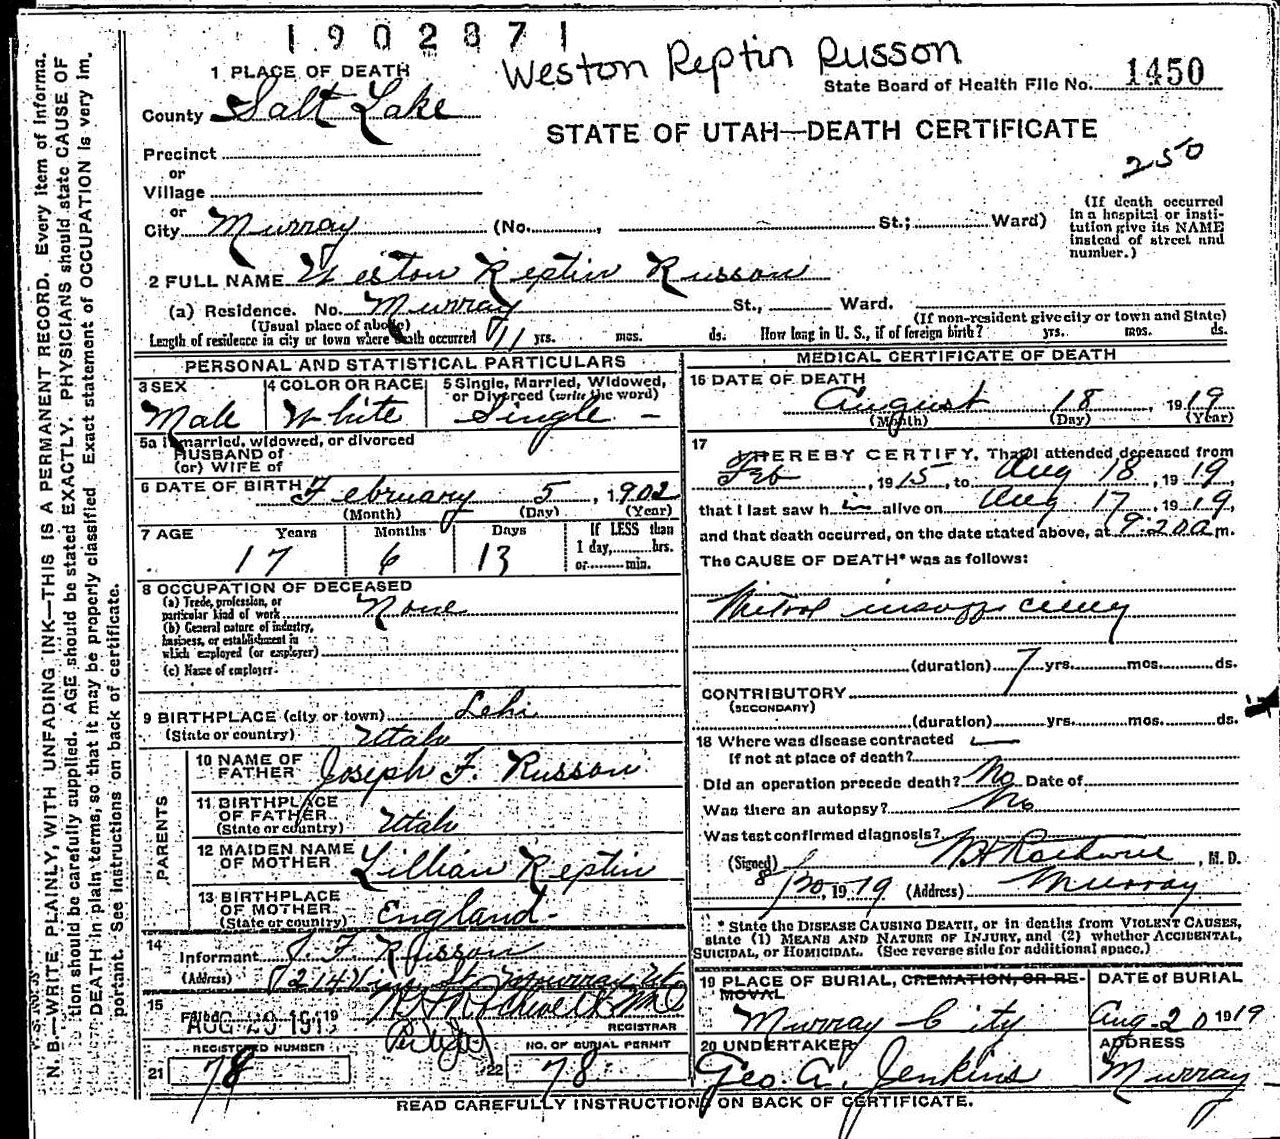 1902871
Weston Reptin Russon
1 PLACE OF DEATH
State Board of Health File No. 1450
County Salt Lake
STATE OF UTAH—DEATH CERTIFICATE
250
Precinct
or
Village
or
City Murray (No. , St.; Ward)
(If death occurred in a hospital or insti-
tution give its NAME
instead of street and
number.)
2 FULL NAME Weston Reptin Russon
(a) Residence. No. Murray St., Ward.
(Usual place of abode) (If non-resident give city or town and State)
Length of residence in city or town where death occurred 11 yrs. mos. ds. How long in U. S., if of foreign birth? yrs. mos. ds.
PERSONAL AND STATISTICAL PARTICULARS
3 SEX Male
4 COLOR OR RACE White
5 Single, Married, Widowed,
or Divorced (write the word)
Single —
5a If married, widowed, or divorced
HUSBAND of
(or) WIFE of
6 DATE OF BIRTH February 5, 1902
(Month) (Day) (Year)
7 AGE Years Months Days
17 6 13
If LESS than
1 day, hrs.
or min.
8 OCCUPATION OF DECEASED
(a) Trade, profession, or
particular kind of work None
(b) General nature of industry,
business, or establishment in
which employed (or employer)
(c) Name of employer
9 BIRTHPLACE (city or town) Lehi
(State or country) Utah
PARENTS
10 NAME OF
FATHER Joseph F. Russon
11 BIRTHPLACE
OF FATHER
(State or country) Utah
12 MAIDEN NAME
OF MOTHER Lillian Reptin
13 BIRTHPLACE
OF MOTHER
(State or country) England.
14
Informant J. F. Russon
(Address) Murray Ut
15
Filed AUG 20 1919 19
REGISTRAR
REGISTERED NUMBER
21 78
NO. OF BURIAL PERMIT
22 78
MEDICAL CERTIFICATE OF DEATH
16 DATE OF DEATH
August 18, 1919
(Month) (Day) (Year)
17
I HEREBY CERTIFY, That I attended deceased from
Feb, 1915, to Aug 18, 1919,
that I last saw him alive on Aug 17, 1919,
and that death occurred, on the date stated above, at 9:20 a m.
The CAUSE OF DEATH* was as follows:
Mitral insufficiency
(duration) 7 yrs. mos. ds.
CONTRIBUTORY
(SECONDARY)
(duration) yrs. mos. ds.
18 Where was disease contracted —
If not at place of death?
Did an operation precede death? No Date of
Was there an autopsy? No
Was test confirmed diagnosis?
(Signed) , M. D.
8/20, 1919 (Address) Murray
* State the DISEASE CAUSING DEATH, or in deaths from VIOLENT CAUSES,
state (1) MEANS AND NATURE OF INJURY, and (2) whether ACCIDENTAL,
SUICIDAL, or HOMICIDAL. (See reverse side for additional space.)
19 PLACE OF BURIAL, CREMATION, OR RE-
MOVAL
Murray City
DATE OF BURIAL
Aug. 20 1919
20 UNDERTAKER
Geo. A. Jenkins
ADDRESS
Murray
READ CAREFULLY INSTRUCTIONS ON BACK OF CERTIFICATE.
N. B.—WRITE PLAINLY, WITH UNFADING INK—THIS IS A PERMANENT RECORD. Every item of informa-
tion should be carefully supplied. AGE should be stated EXACTLY. PHYSICIANS should state CAUSE OF
DEATH in plain terms, so that it may be properly classified. Exact statement of OCCUPATION is very im-
portant. See instructions on back of certificate.